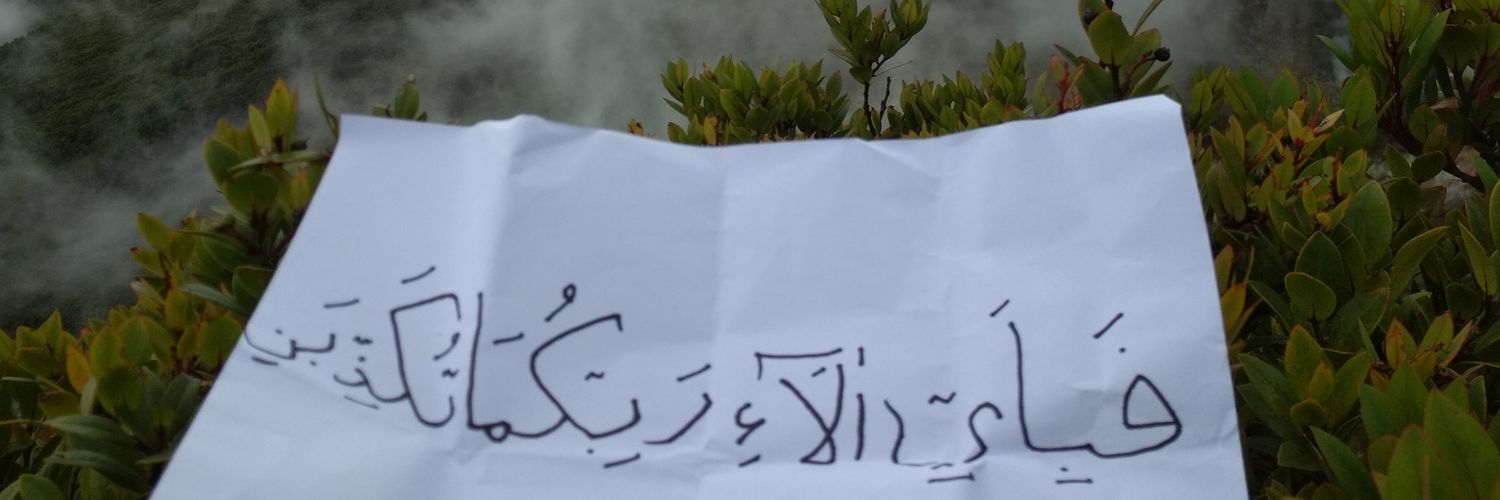 فَبِأَيِّ اٰلَآءِ رَبِّكُمَا تُكَذِّبَنِ